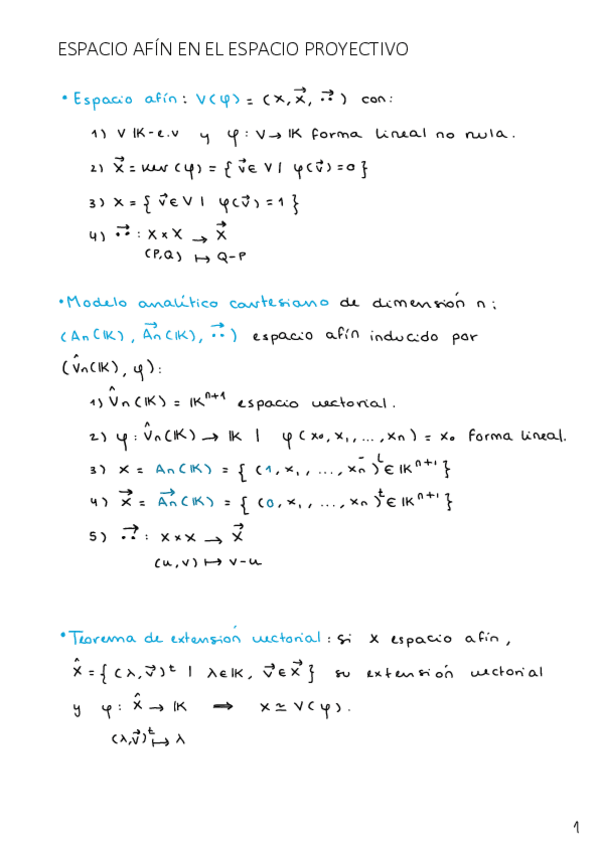 ESPACIO AFÍN EN EL ESPACIO PROYECTIVO
• Espacio afín: V(φ) = (X, X⃗, ⃗··) con:
1) V 𝕂-e.v y φ: V→𝕂 forma lineal no nula.
2) X⃗ = ker(φ) = { v⃗ ∈ V | φ(v⃗) = 0 }
3) X = { v⃗ ∈ V | φ(v⃗) = 1 }
4) ⃗·· : X × X → X⃗
(P,Q) ↦ Q-P
• Modelo analítico cartesiano de dimensión n:
(An(𝕂), A⃗n(𝕂), ⃗··) espacio afín inducido por
(V̂n(𝕂), φ):
1) V̂n(𝕂) = 𝕂ⁿ⁺¹ espacio vectorial.
2) φ: V̂n(𝕂) → 𝕂 | φ(x₀, x₁, ..., xn) = x₀ forma lineal.
3) X = An(𝕂) = { (1, x₁, ..., xn)ᵗ ∈ 𝕂ⁿ⁺¹ }
4) X⃗ = A⃗n(𝕂) = { (0, x₁, ..., xn)ᵗ ∈ 𝕂ⁿ⁺¹ }
5) ⃗·· : X × X → X⃗
(u,v) ↦ v-u
• Teorema de extensión vectorial: si X espacio afín,
X̂ = { (λ, v⃗)ᵗ | λ ∈ 𝕂, v⃗ ∈ X⃗ } su extensión vectorial
y φ: X̂ → 𝕂 ⟹ X ≃ V(φ).
(λ,v⃗)ᵗ ↦ λ
1